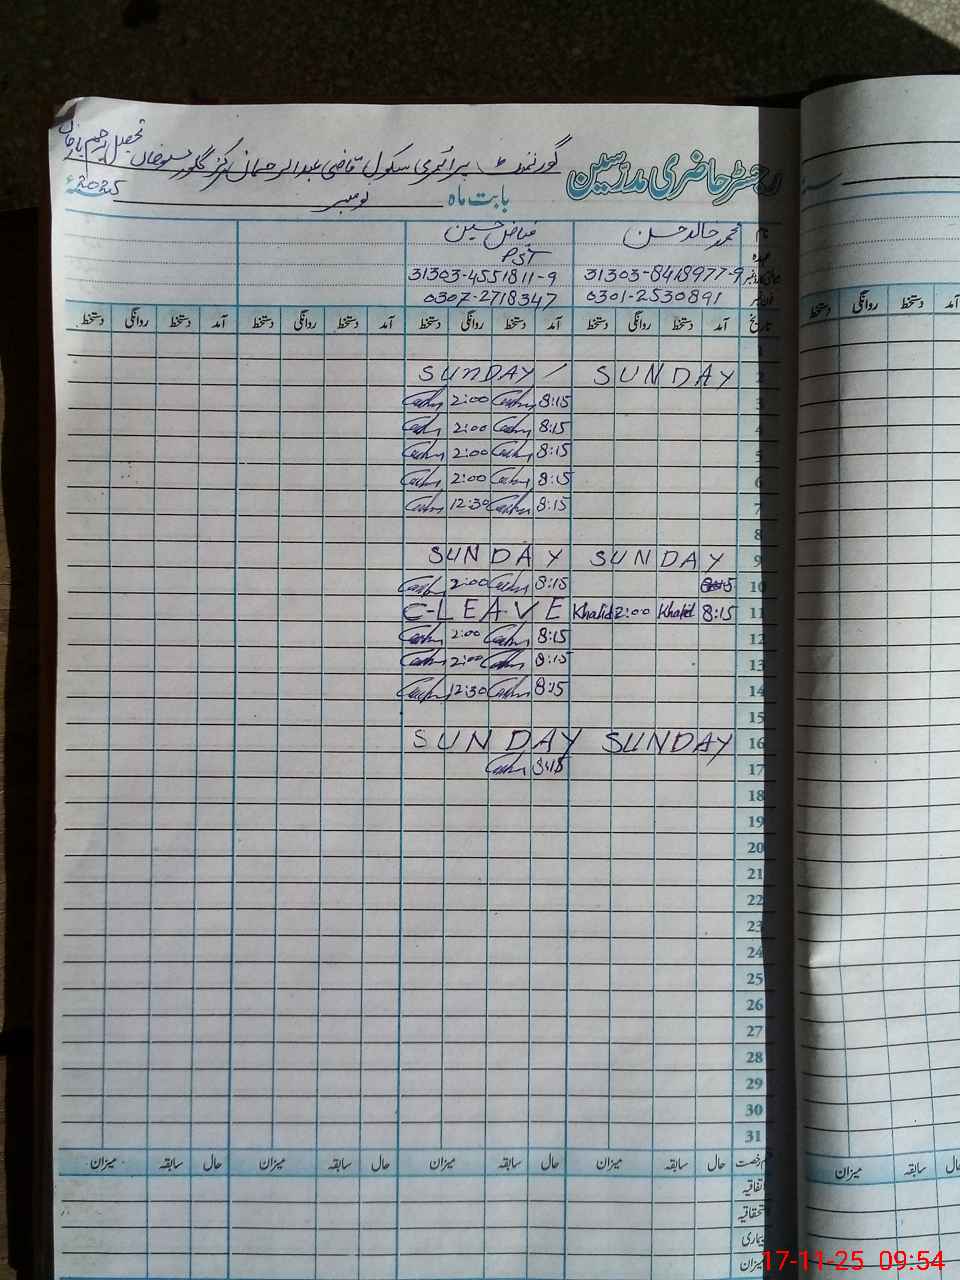 رجسٹر حاضری مدرسین گورنمنٹ پرائمری سکول قاضی عبدالرحمان
تحصیل رحیم یار خاں
بابت ماہ نومبر 2025ء
نام محمد خالد حسن فیاض حسین
عہدہ PST
31303-8418977-9 31303-4551811-9
0301-2530891 0307-2718347
تاریخ آمد دستخط روانگی دستخط آمد دستخط روانگی دستخط آمد دستخط روانگی دستخط آمد دستخط روانگی دستخط
آمد دستخط روانگی دستخط
1
2 SUNDAY SUNDAY
3 8:15 2:00
4 8:15 2:00
5 8:15 2:00
6 8:15 2:00
7 8:15 12:30
8
9 SUNDAY SUNDAY
10 8:15 2:00
11 8:15 Khalid 2:00 Khalid C-LEAVE
12 8:15 2:00
13 8:15 2:00
14 8:15 12:30
15
16 SUNDAY SUNDAY
17 8:15
18
19
20
21
22
23
24
25
26
27
28
29
30
31
قسم رخصت حال سابقہ میزان حال سابقہ میزان حال سابقہ میزان حال سابقہ میزان
حال سابقہ میزان
اتفاقیہ
استحقاقیہ
بیماری
میزان
17-11-25 09:54